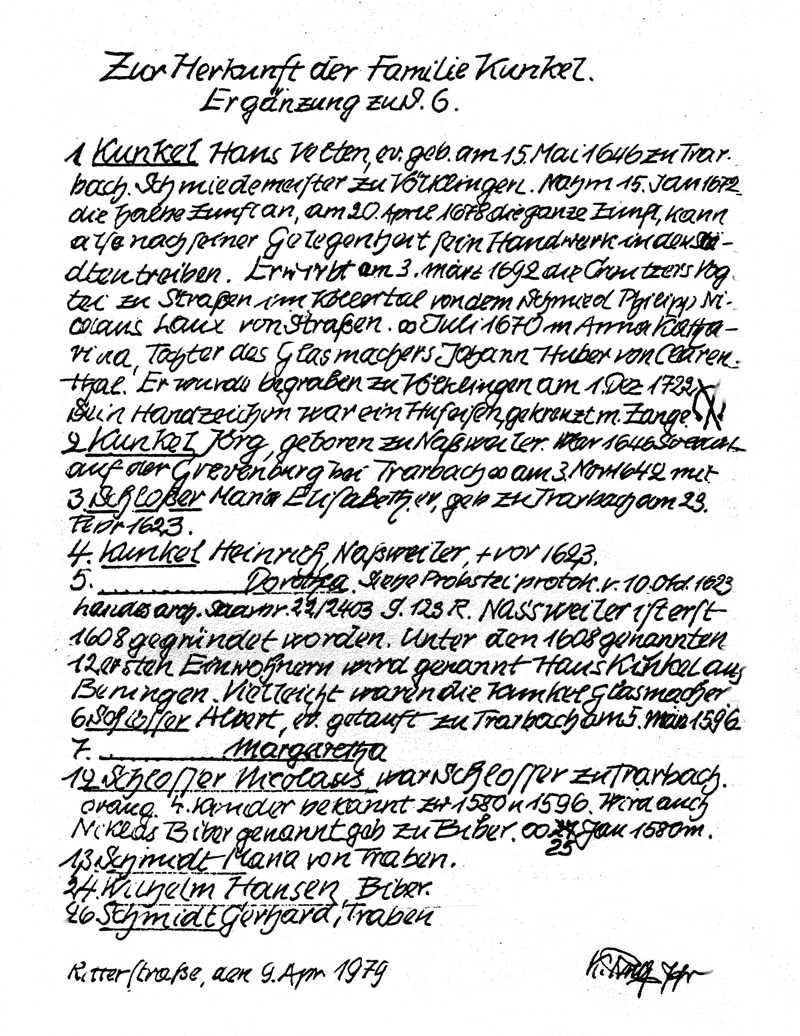 Zur Herkunft der Familie Kunkel.
Ergänzung zu S. 6.
1 Kunkel Hans Velten, ev. geb. am 15. Mai 1646 zu Trar-
bach. Schmiedemeister zu Völklingen. Nahm 15. Jan 1672
die halbe Zunft an, am 20. April 1678 die ganze Zunft, kann
also nach seiner Gelegenheit sein Handwerk in den Stä-
dten treiben. Erwirbt am 3. März 1692 die Creutzers Vog
tei zu Straßen im Köllertal von dem Schmied Philipp Ni-
colaus Laux von Straßen. ∞ Juli 1670 m Anna Katha-
rina, Tochter des Glasmachers Johann Huber von Claren-
thal. Er wurde begraben zu Völklingen am 1. Dez 1722
Sein Handzeichen war ein Hufeisen, gekreuzt m. Zange.
2 Kunkel Jörg, geboren zu Naßweiler. War 1646
auf der Grevenburg bei Trarbach ∞ am 3. Nov 1642 mit
3. Schloßer Maria Elisabeth, ev. geb zu Trarbach am 23.
Febr 1623.
4. Kunkel Heinrich, Naßweiler, + vor 1623.
5. ............ Dorothea. Siehe Probstei protok. v. 10. Okt. 1623
Landesarch. Saarbr. 22/2403 S. 123 R. Nassweiler ist erst
1608 gegründet worden. Unter den 1608 genannten
12 ersten Einwohnern wird genannt Hans Kunkel aus
Beningen. Vielleicht waren die Kunkel Glasmacher.
6. Schlosser Albert, ev. getauft zu Trarbach am 5. März 1596
7. ............ Margaretha
12 Schlosser Nicolaus war Schlosser zu Trarbach.
4. Kinder bekannt zw 1580 u 1596. Wird auch
Niklas Biber genannt geb zu Biber. ∞ 25 Jan 1580 m.
13. Schmidt Maria von Traben.
24. Wilhelm Hansen, Biber.
26 Schmidt Gerhard, Traben
Ritterstraße, den 9. Apr 1979